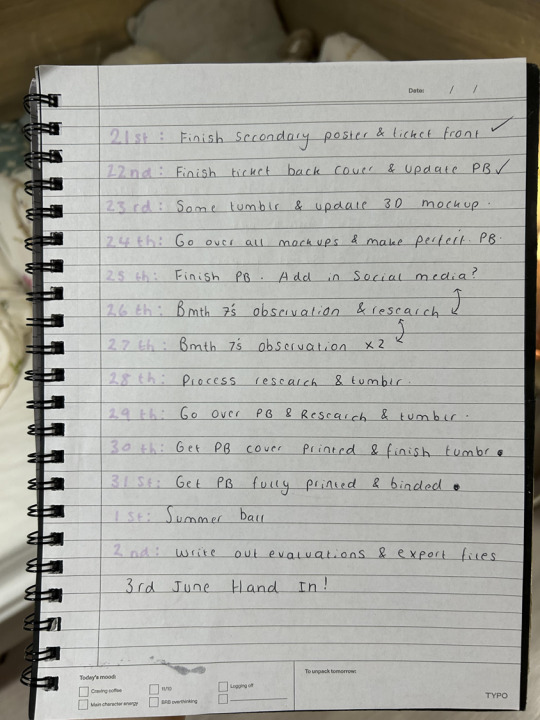 Date: / /
21st: Finish secondary poster & ticket front ✓
22nd: Finish ticket back cover & update PB ✓
23rd: Some tumblr & update 3D mockup.
24th: Go over all mockups & make perfect. PB.
25th: Finish PB. Add in Social media?
26th: Bmth 7's observation & research
27th: Bmth 7's observation x2
28th: Process research & tumblr.
29th: Go over PB & Research & tumblr.
30th: Get PB cover printed & finish tumbr •
31st: Get PB fully printed & binded •
1st: Summer ball
2nd: Write out evaluations & export files
3rd June Hand In!
Today's mood:
Craving coffee
11/10
Logging off
Main character energy
BRB overthinking
To unpack tomorrow:
TYPO